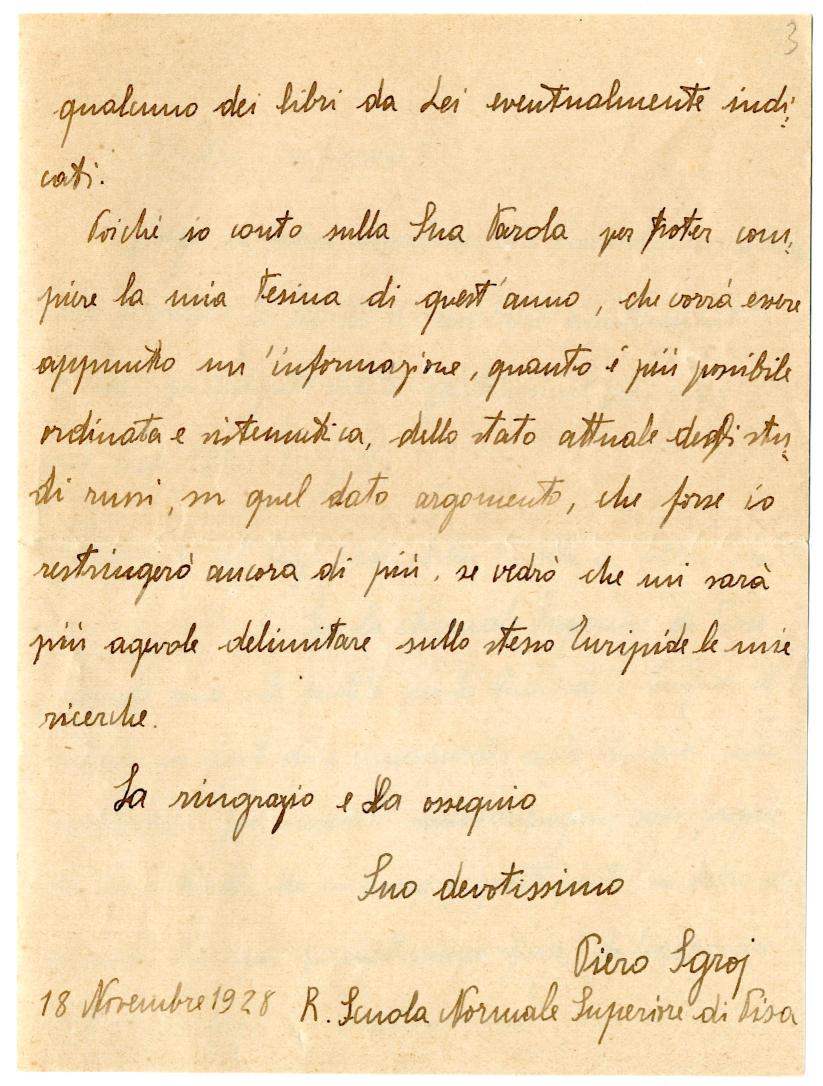 3
qualcuno dei libri da Lei eventualmente indi-
cati.
Poiché io conto sulla Sua Parola per poter com-
piere la mia Tesina di quest'anno, che vorrà essere
appunto un'informazione, quanto è più possibile
ordinata e sistematica, dello stato attuale degli stu-
di russi, su quel dato argomento, che forse io
restringerò ancora di più, se vedrò che mi sarà
più agevole delimitare sullo stesso Euripide le mie
ricerche.
La ringrazio e La ossequio
Suo devotissimo
Piero Sgroj
18 Novembre 1928 R. Scuola Normale Superiore di Pisa